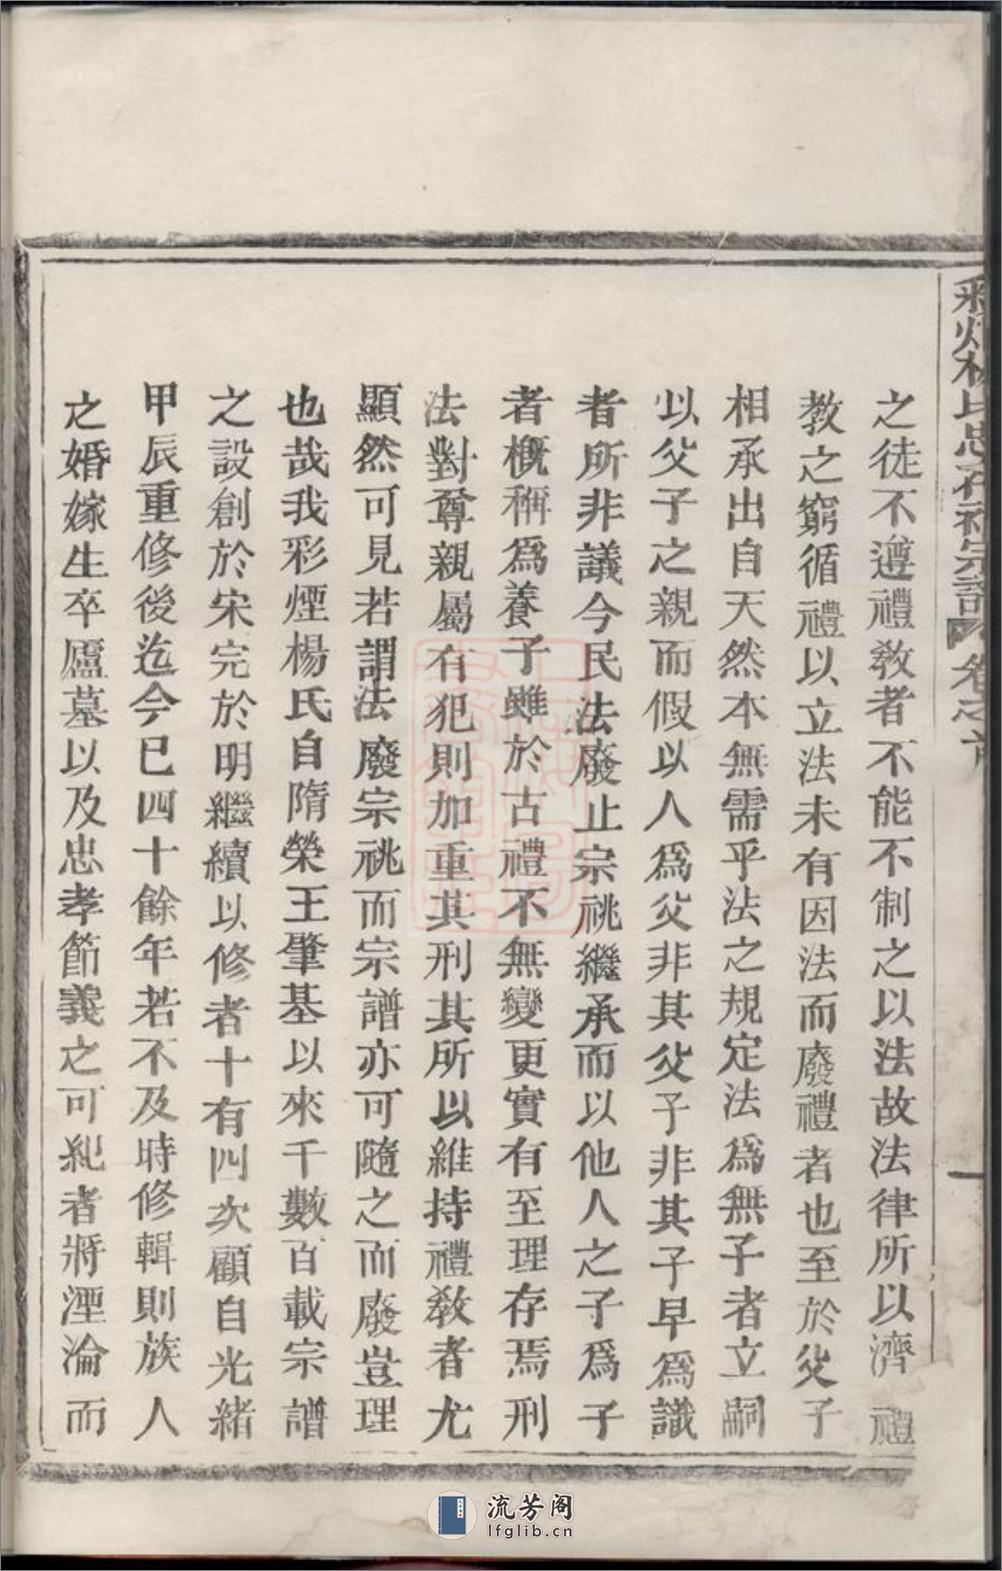 之徒不遵禮敎者不能不制之以法故法律所以濟禮
教之窮循禮以立法未有因法而廢禮者也至於父子
相承出自天然本無需乎法之規定法爲無子者立嗣
以父子之親而假以人爲父非其父子非其子早爲識
者所非議今民法廢止宗祧繼承而以他人之子爲子
者槪稱爲養子雖於古禮不無變更實有至理存焉刑
法對尊親屬有犯則加重其刑其所以維持禮敎者尤
顯然可見若謂法廢宗祧而宗譜亦可隨之而廢豈理
也哉我彩煙楊氏自隋榮王肇基以來千數百載宗譜
之設創於宋完於明繼續以修者十有四次顧自光緒
甲辰重修後迄今已四十餘年若不及時修輯則族人
之婚嫁生卒廬墓以及忠孝節義之可紀者將湮淪而
氏忠孝祠宗譜 卷之首
一
流芳阁
lfglib.cn